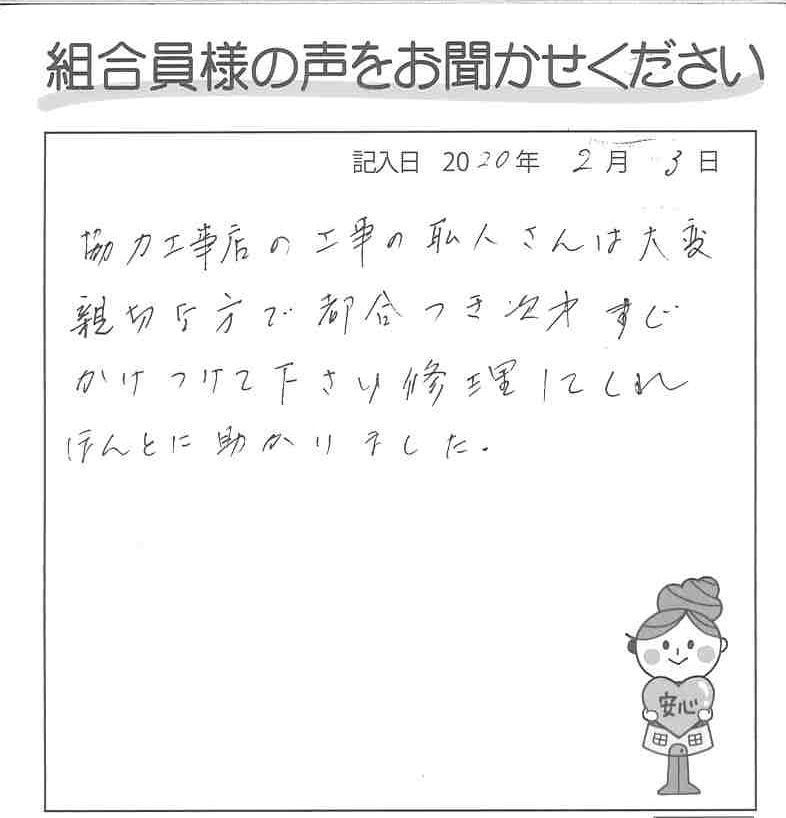 組合員様の声をお聞かせください
記入日 2020年 2月 3日
協力工事店の工事の職人さんは大変
親切な方で都合つき次才すぐ
かけつけて下さり修理してくれ
ほんとに助かりました.
安心